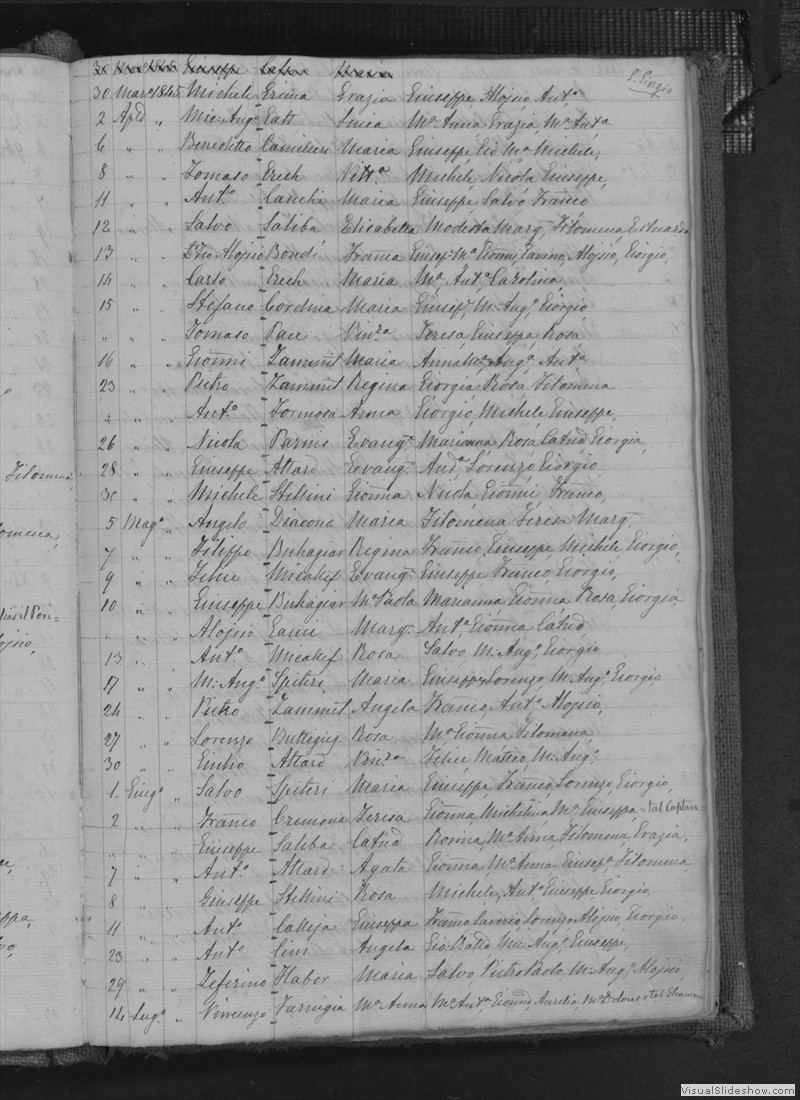 30 Mar 1845 Giuseppe Maria
30 Mar 1845 Michele Grima Grazia Giuseppe, Alojsio, Ant.º
2 Aple „ Mic: Ang.º Gatt Mª Anna Grazia, Mª Antª
6 „ „ Benedetto Camilleri Maria Giuseppe, Gio Mª Michele,
8 „ „ Tomaso Grech Vittª Michele Nicola Giuseppe,
11 „ „ Ant.º Cauchi Maria Giuseppe Salvo Franco
12 „ „ Salvo Saliba Elisabetta Modesta Marg. Filomena, Eduardo
13 „ „ Alojsio Bondi Franca Giusep. Mª Gionni, Savino, Alojsio, Giorgio,
14 „ „ Carlo Grech Maria Mª Antª Carolina,
15 „ „ Stefano Cordina Maria Giusep. M: Ang.º Giorgio
„ „ „ Tomaso Pace Vin.za Teresa Giuseppa Rosa
16 „ „ Gionni Zammit Maria Anna Mª Angª Antª
23 „ „ Pietro Zammit Regina Giorgia Rosa Filomena
„ „ „ Ant.º Formosa Anna Giorgio, Michele Giuseppe,
26 „ „ Nicola Parnis Evang. Marianna Rosa, Catnd, Giorgia,
28 „ „ Giuseppe Attard Evang. Andª Lorenzo, Giorgio
30 „ „ Michele Stellini Gionna Nicola Gionni, Franco,
5 Magº „ Angelo Diacono Maria Filomena Teresa Marg.
7 „ „ Filippo Buhagiar Regina Franco, Giuseppe Michele, Giorgio,
9 „ „ Felice Micallef Evang. Giuseppe Franco Giorgio,
10 „ „ Giuseppe Buhagiar Mª Paola Marianna, Gionna Rosa, Giorgia
„ „ „ Alojsio Gauci Marg. Antª Gionna Catnd,
13 „ „ Ant.º Micallef Rosa Salvo M: Ang.º, Giorgio
17 „ „ M: Ang.º Spiteri Maria Giuseppe Lorenzo M: Ang.º, Giorgio
24 „ „ Pietro Zammit Angela Franco, Ant.º Alojsio,
27 „ „ Lorenzo Buttigieg Rosa Mª Gionna Filomena
30 „ „ Emilio Attard Vin.za Felice Matteo, M: Ang.º
1 Giugº „ Salvo Spiteri Maria Giuseppe Franco, Lorenzo, Giorgio,
2 „ „ Franco Cremona Teresa Gionna, Michelina, Mª Giuseppa
„ „ „ Giuseppe Saliba Catnd Rosina, Mª Anna Filomena, Grazia,
7 „ „ Ant.º Attard Agata Gionna, Mª Anna Giusepª Filomena
8 „ „ Giuseppe Stellini Rosa Michele, Ant.º Giuseppe Giorgio,
11 „ „ Ant.º Calleja Giuseppa Franco Saverio, Lorenzo Alojsio, Giorgio,
23 „ „ Ant.º Cini Angela Gio: Batta, Mic: Ang.º Giuseppe,
29 „ „ Zeferino Haber Maria Salvo, Pietro Paolo, M: Ang.º Alojsio,
14 Lugº „ Vincenzo Farrugia Mª Anna Mª Antª, Gionna, Aurelia, Mª Dolores
Filomena,
VisualSlideshow.com